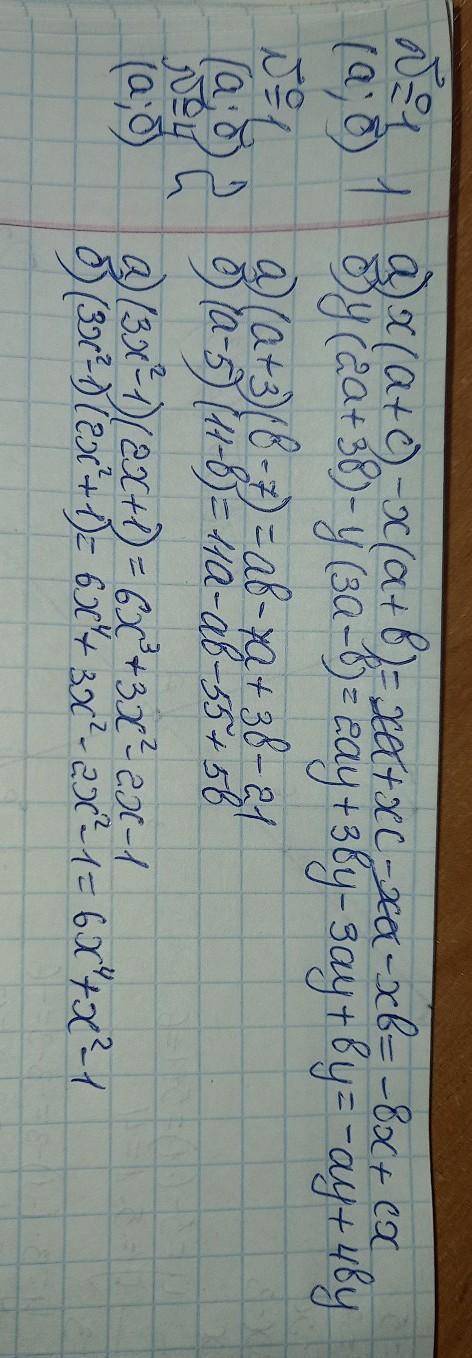 №1
(а; б) 1
а) x(a+c)-x(a+b)=xa+xc-xa-xb=-bx+cx
б) y(2a+3b)-y(3a-b)=2ay+3by-3ay+by=-ay+4by
№1
(а; б) 2
№4
(а; б)
а) (a+3)(b-7)=ab-7a+3b-21
б) (a-5)(11-b)=11a-ab-55+5b
а) (3x²-1)(2x+1)=6x³+3x²-2x-1
б) (3x²-1)(2x²+1)=6x⁴+3x²-2x²-1=6x⁴+x²-1